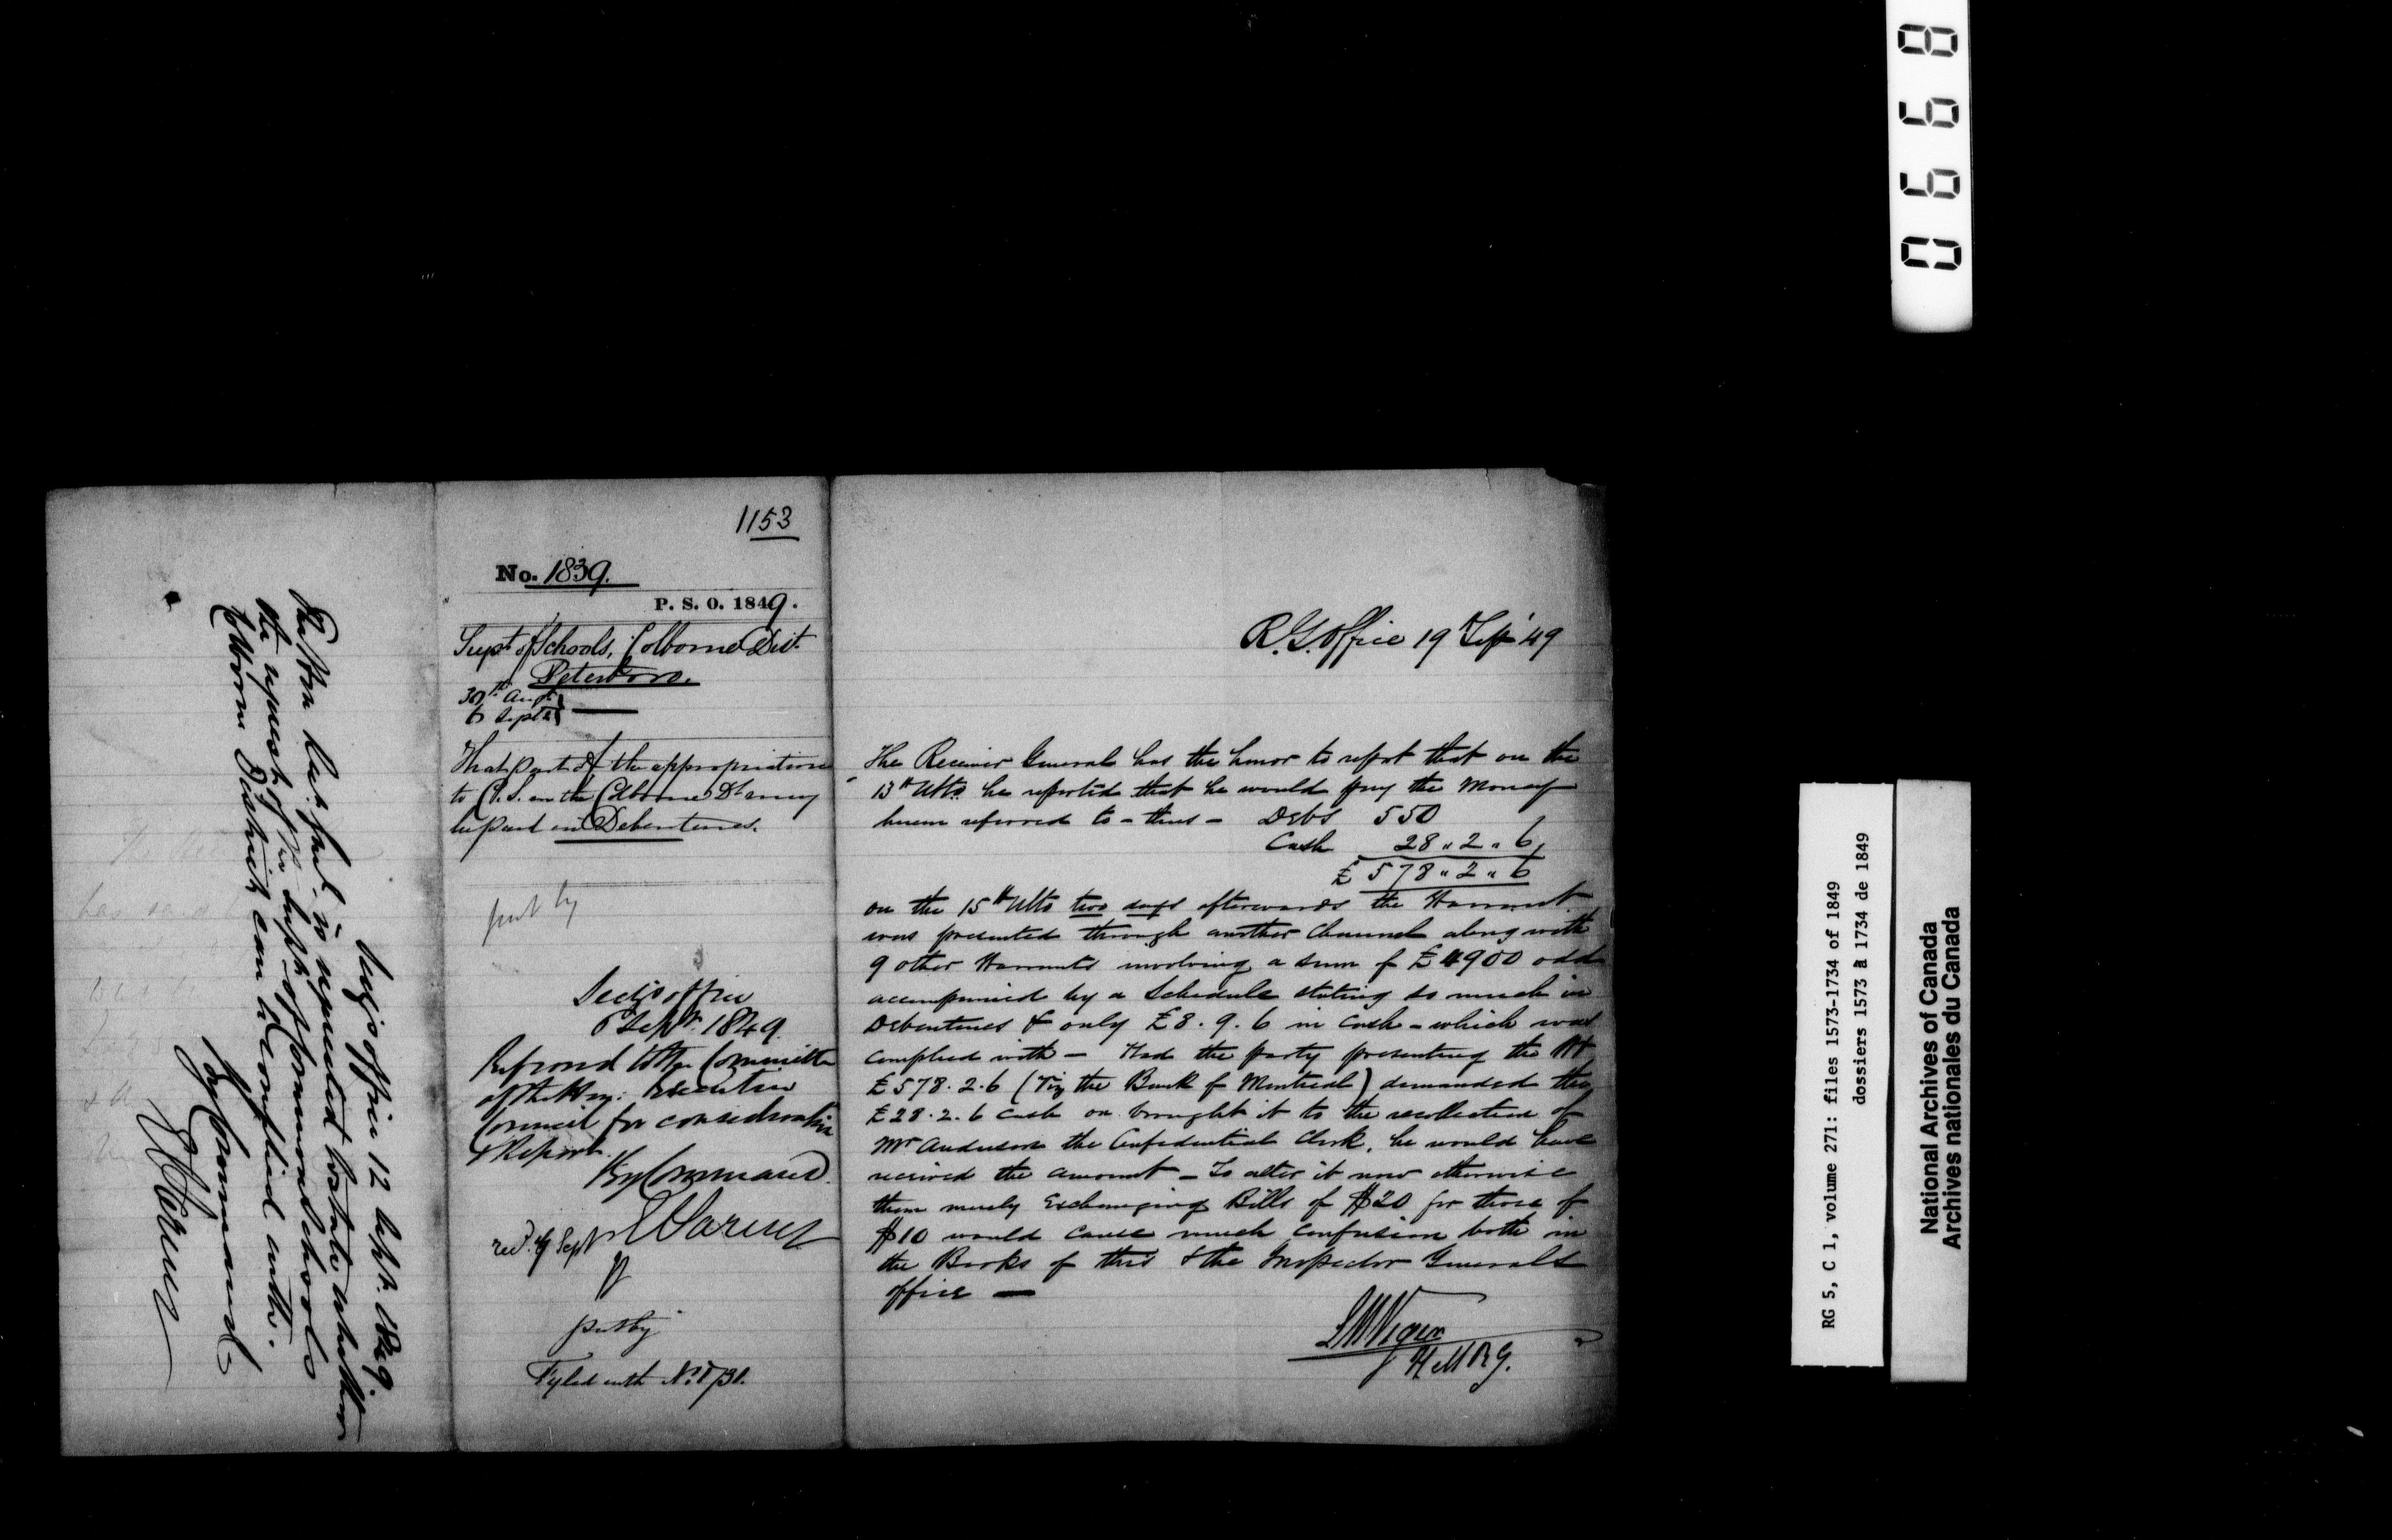 0668
1153
No. 1839.
P. S. O. 1849.
Supt of Schools, Colborne Dist.
Peterboro.
30th Augt
6 Septr
That part of the appropriation
to C. S. in the Colborne Dt may
be paid in Debentures.
put by
Secy's office
6 Septr. 1849
Referred to the Committee
of the Hon: Executive
Council for consideration
& Report.
By Command.
Recd. 9 Sept
put by
Fyled with No. 1731.
Secy's office 12 Sept. 1849.
The Hon. Recr. Genl. is requested to state whether
the request of the Supt. of Common Schools
Colborne District can be complied with.
By Command
R. G. Office 19 Sept '49
The Receiver General has the honor to report that on the
13th Ulto. he reported that he would pay the Money
herein referred to - thus - Debs 550
Cash 28 " 2 " 6
£ 578 " 2 " 6
on the 15th Ulto two days afterwards the Warrant
was presented through another Channel along with
9 other Warrants involving a sum of £4900 odd
accompanied by a Schedule stating so much in
Debentures & only £8. 9. 6 in Cash - which was
complied with - Had the party presenting the Wt
£578. 2. 6 (Viz the Bank of Montreal) demanded the
£28. 2. 6 Cash or brought it to the recollection of
Mr Anderson the Confidential Clerk, he would have
received the amount - To alter it now otherwise
than merely Exchanging Bills of $20 for those of
$10 would cause much confusion both in
the Books of this & the Inspector Generals
office -
L M Viger
H M R G.
RG 5, C 1, volume 271: files 1573-1734 of 1849
dossiers 1573 à 1734 de 1849
National Archives of Canada
Archives nationales du Canada